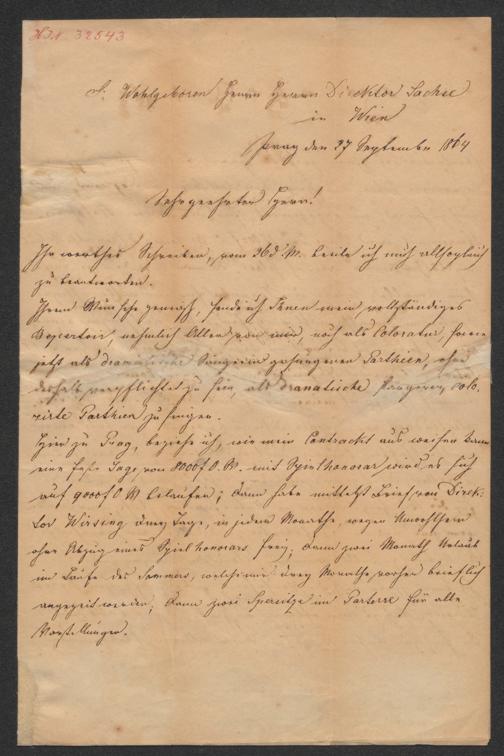 H.I.N. 32543
S. Wohlgeboren Herrn Herrn Direktor Sachse
in Wien
Prag den 27 September 1864
Sehrgeehrter Herr!
Ihr werthes Schreiben, vom 26 d. M. beeile ich mich allsogleich
zu beantworten.
Ihrem Wunsche gemäß, sende ich Ihnen mein, vollständiges
Repertoir, nehmlich Aller von mir, noch als Coloratur, sowie
jetzt als dramatische Sängerin gesungenen Parthien, ohne
deshalb verpflichtet zu sein, als dramatische Sängerin, colo-
rirte Parthien zu singen.
Hier zu Prag, beziehe ich, wie mein Contrackt aus weisen kann
eine fixe Gage, von 8000 f Ö. W. mit Spielhonorar wird es sich
auf 9000 f Ö W belaufen; dann habe mittelst Brief von Direk-
tor Wirsing drey Tage, in jedem Monathe, wegen Unwohlsein
ohne Abzug eines Spielhonorars frey; dann zwei Monath Urlaub
im Laufe des Sommers, welche mir drey Monathe vorher brieflich
angezeigt werden; dann zwei Sperrsitze im Parterre für alle
Vorstellungen.